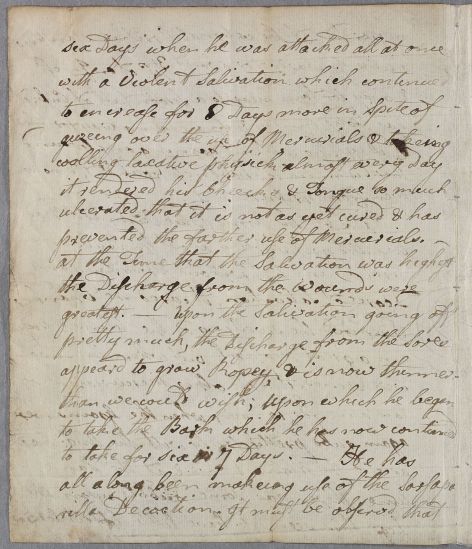 six Days when he was attacked all at once
with a Violent Salivation which continued
to increase for 8 Days more in spite of
giveing over the use of Mercurials & takeing
coolling laxative physick almost every Day
it rendered his Cheecks & Tongue so much
ulcerated that it is not as yet cured & has
prevented the farther use of Mercurials.
at the Time that the Salivation was highest
the Discharge from the Wounds were
greatest. — upon the Salivation going off
pretty much, the Discharge from the Sores
appeard to grow Ropey & is now thinner
than we coud wish; upon which he began
to take the Bark which he has now continued
to take for six or 7 Days. — He has
all along been makeing use of the Sarsapa
rilla Decoction. it must be observd that